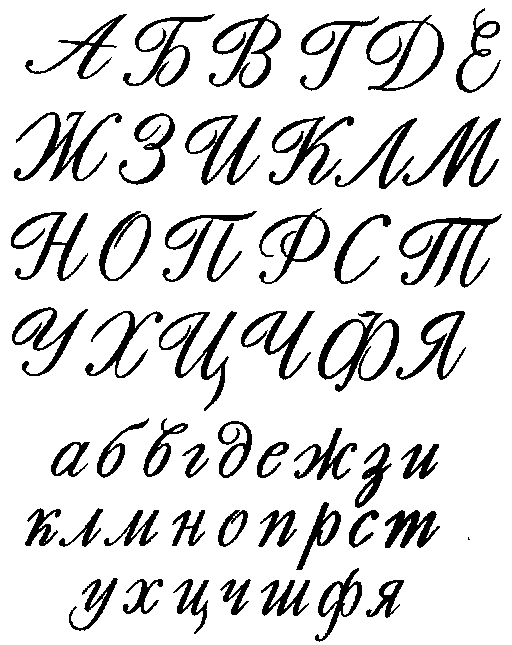 АБВГДЕ
ЖЗИКЛМ
НОПРСТ
УХЦЧФЯ
абвгдежзи
клмнопрст
ухцчшфя